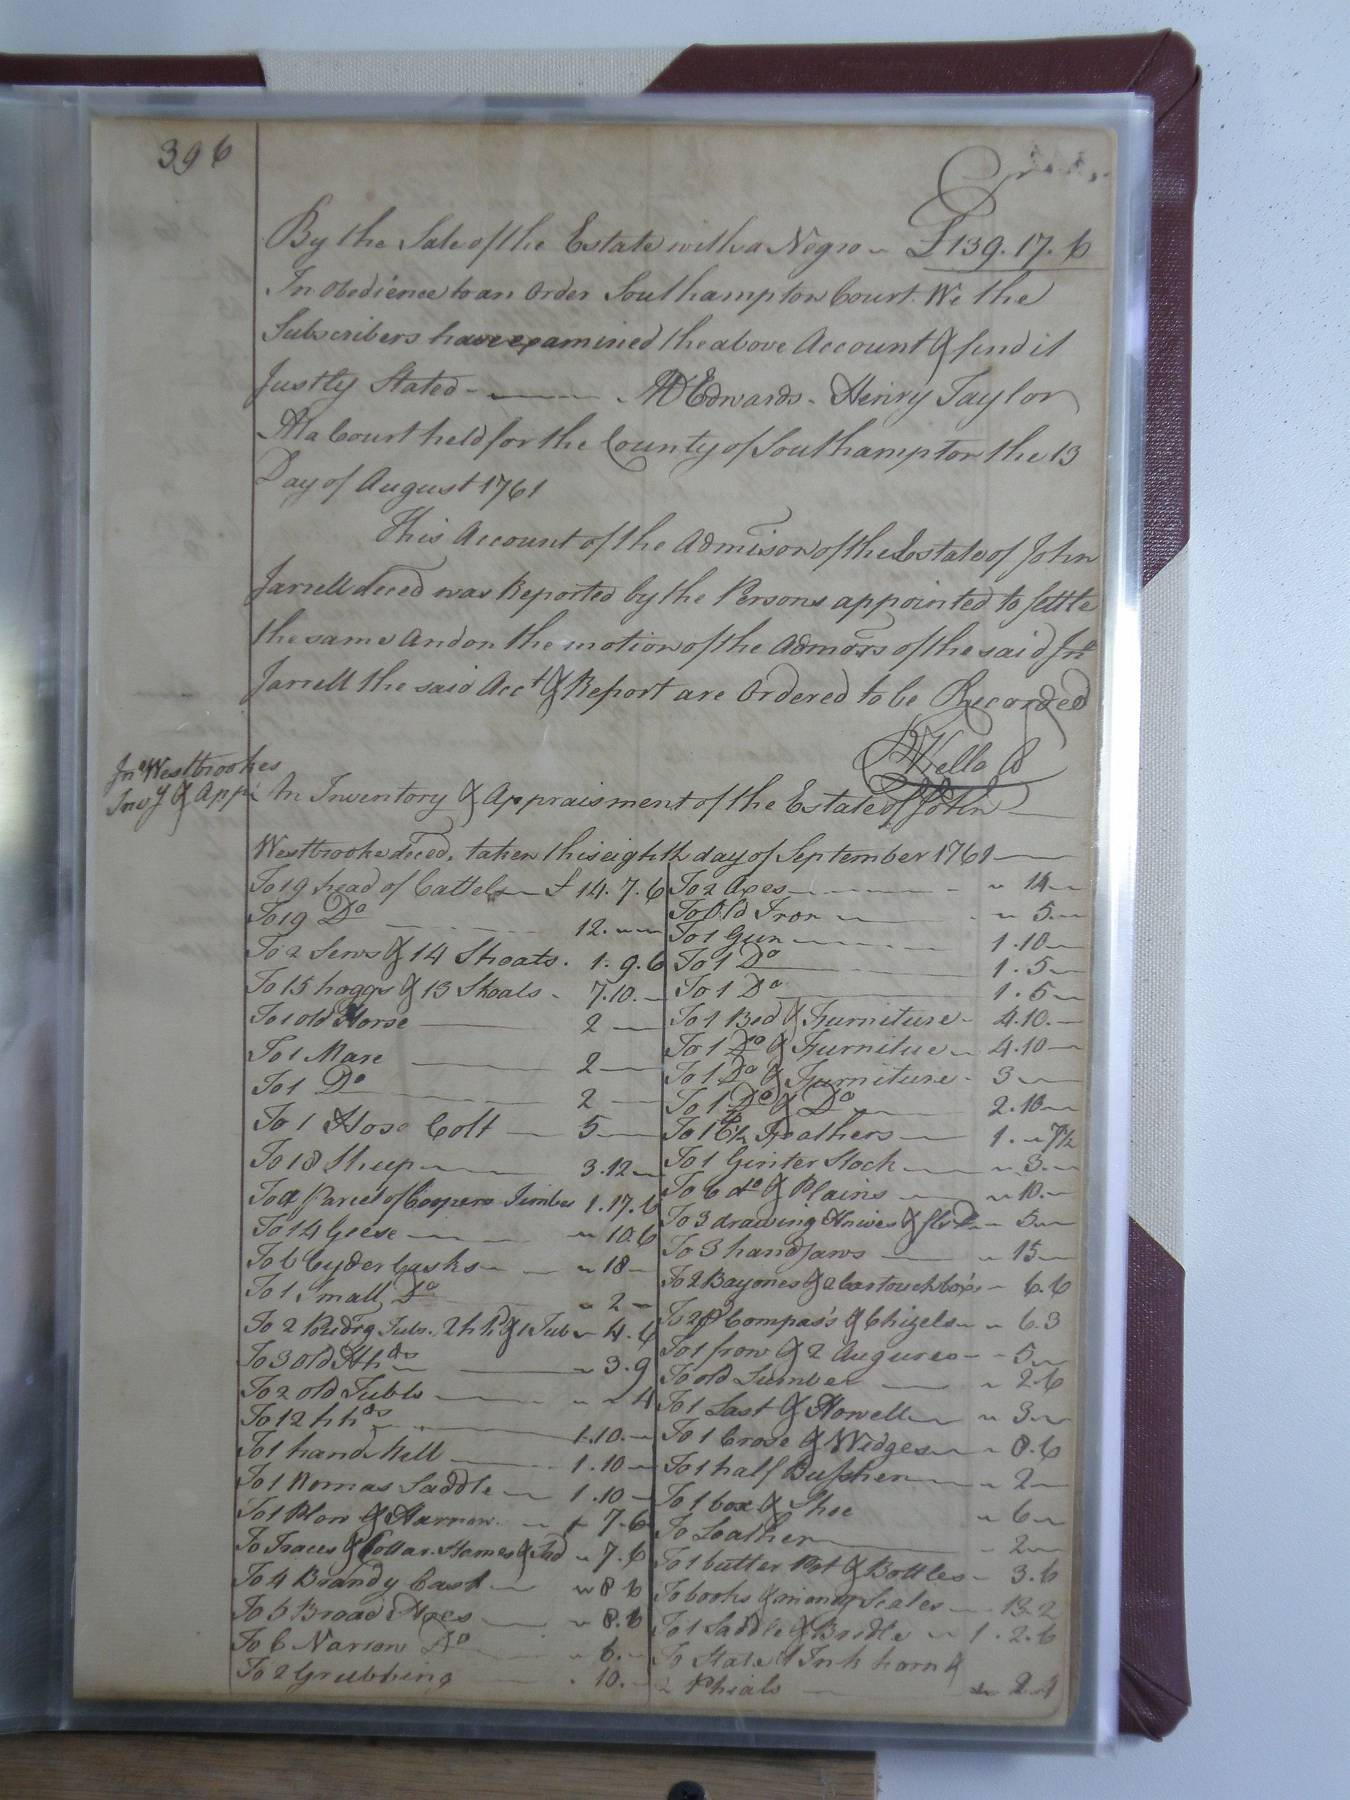 396
Cr
By the Sale of the Estate with a Negro £139.17.6
In obedience to an order Southampton Court. We the
Subscribers have examined the above Account & find it
Justly Stated Edwards. Henry Taylor
At a Court held for the County of Southampton the 13
Day of August 1761
This Account of the Admison of the Estate of John
Jarrell deced was Reported by the Persons appointed to settle
the same and on the motion of the Admors of the said Jno
Jarrell the said Acct & Report are Ordered to be Recorded
Jno Westbrookes
Invy & App.
An Inventory & Appraisment of the Estate of John
Westbrooke deced, taken this eighth day of September 1761
To 19 head of Cattel £ 14.7.6
To 19 Do 12.
To 2 Sows & 14 Shoats. 1.9.6
To 15 hoggs & 13 Shoats 7.10.
To 1 old Horse 2
To 1 Mare 2
To 1 Do 2
To 1 Hose Colt 5
To 18 Sheep 3.12
To a Parcel of Coopers Timber 1.17.6
To 14 Geese 10.6
To 6 Cyder Casks 18
To 1 Small Do 2
To 2 Tubs. 2 hhd & 1 Tub 4.6
To 3 old Hhds 3.9
To 2 old Tubbs 4
To 12 hhds 1.10.
To 1 hand Mill 1.10
To 1 Romas Saddle 1.10
To 1 Plow & Harrow 7.6
To Traces & Collar. Hames & 7.6
To 4 Brandy Cask 8.6
To 5 Broad Hoes 8.6
To 6 Narrow Do 6.
To 2 Grubbing 10.
To 2 Axes 14
To Old Iron 5.
To 1 Gun 1.10
To 1 Do 1.5
To 1 Do 1.5
To 1 Bed & Furniture 4.10.
To 1 Do & Furnitue 4.10
To 1 Do & Furniture 3
To 1 Do & Do 2.10
To Feathers 1. 7½
To 1 Ginter Stock 3.
To 6 do & Plains 10.
To 3 drawing Knives & 5
To 3 handsaws 15
To 2 Bayones & 2 Cartouch boxs 6.6
To 2 pr Compass's & Chizels 6.3
To 1 frow & 2 Augures 5
To old Lumber 2.6
To 1 Last & Howell 3
To 1 Crose & Widges 8.6
To 1 half Busshen 2
To 1 box & Shoe 6
To Leather 2
To 1 butter Pot & Bottles 3.6
To books & mony Scales 13.2
To 1 Saddle & Bridle 1.2.6
To Slate & Ink horn &
2 Phials